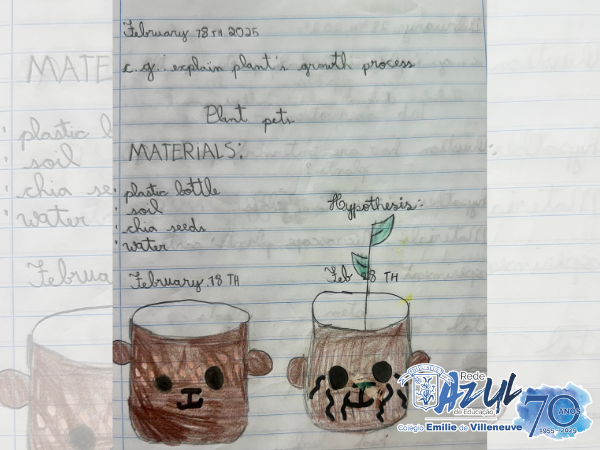 February 18TH 2025
c.g. explain plant's growth process
Plant pets
MATERIALS:
· plastic bottle
· soil
· chia seeds
· water
Hypothesis:
February, 18 TH
Feb 28 TH
Rede
AZUL
de Educação
Colégio Emilie de Villeneuve
70 ANOS
1955 - 2025